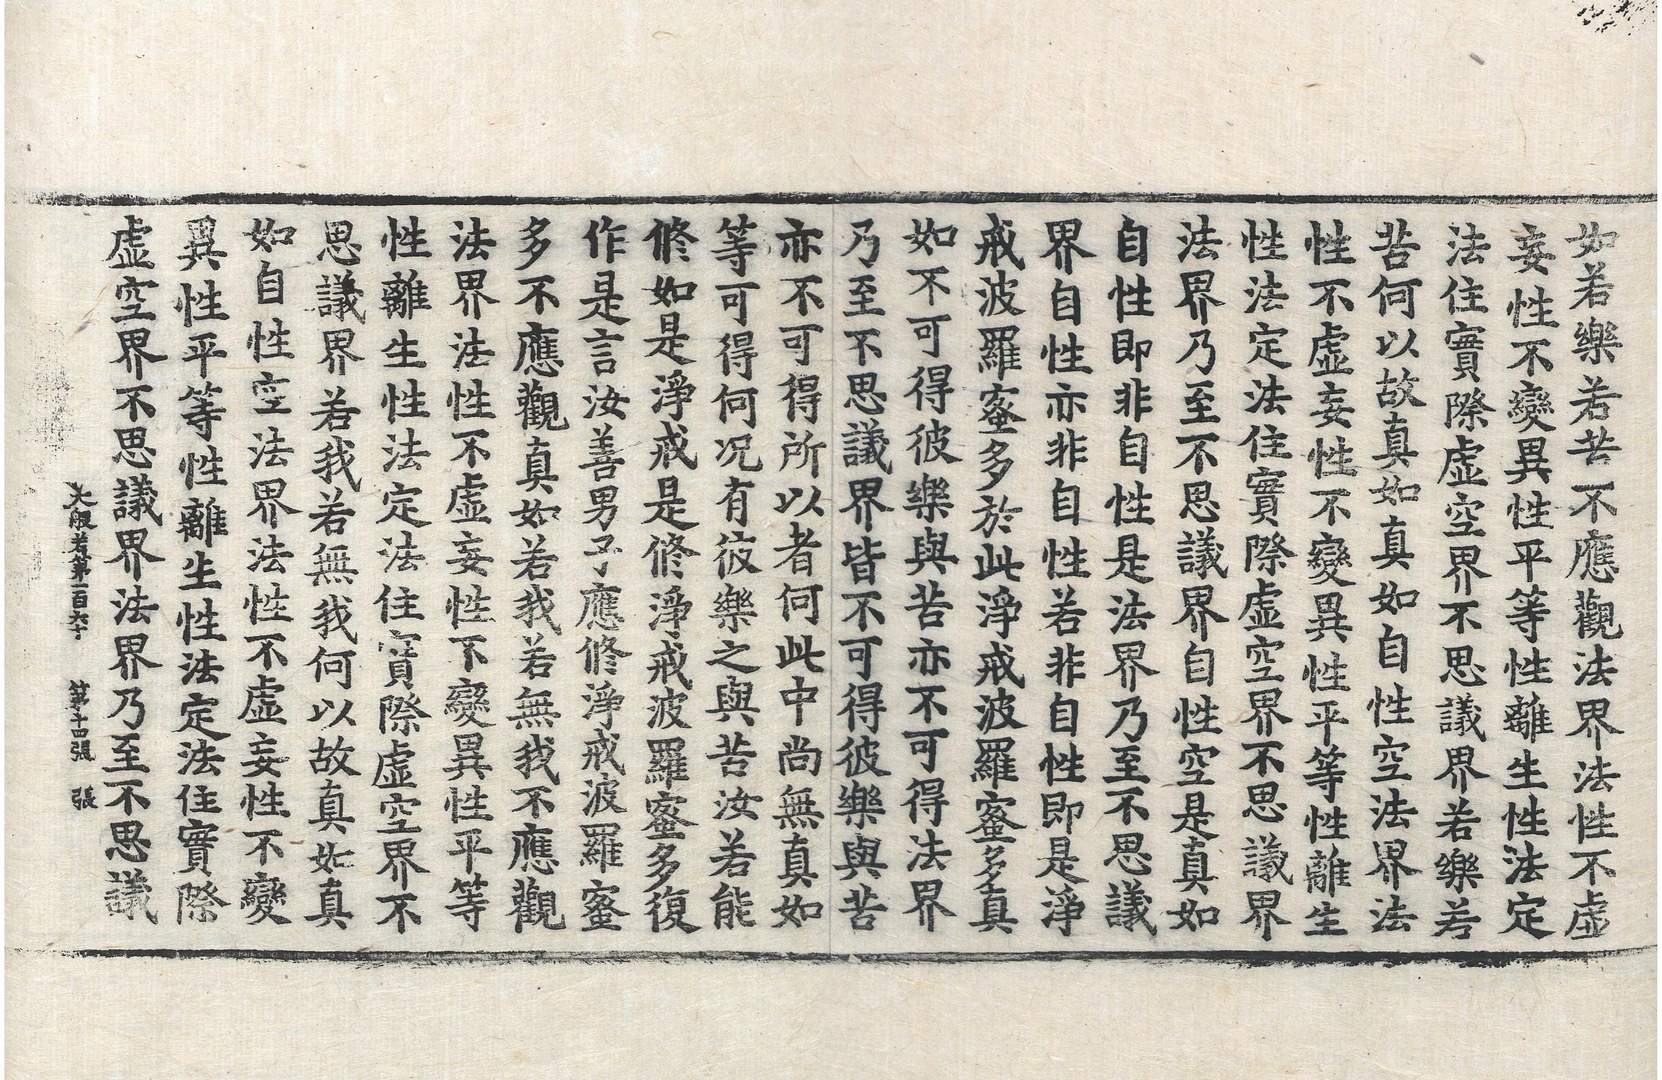 如若樂若苦不應觀法界法性不虛
妄性不變異性平等性離生性法定
法住實際虛空界不思議界若樂若
苦何以故真如真如自性空法界法
性不虛妄性不變異性平等性離生
性法定法住實際虛空界不思議界
法界乃至不思議界自性空是真如
自性即非自性是法界乃至不思議
界自性亦非自性若非自性即是淨
戒波羅蜜多於此淨戒波羅蜜多真
如不可得彼樂與苦亦不可得法界
乃至不思議界皆不可得彼樂與苦
亦不可得所以者何此中尚無真如
等可得何况有彼樂之與苦汝若能
修如是淨戒是修淨戒波羅蜜多復
作是言汝善男子應修淨戒波羅蜜
多不應觀真如若我若無我不應觀
法界法性不虛妄性不變異性平等
性離生性法定法住實際虛空界不
思議界若我若無我何以故真如真
如自性空法界法性不虛妄性不變
異性平等性離生性法定法住實際
虛空界不思議界法界乃至不思議
大般若第一百六十 第十四張 張